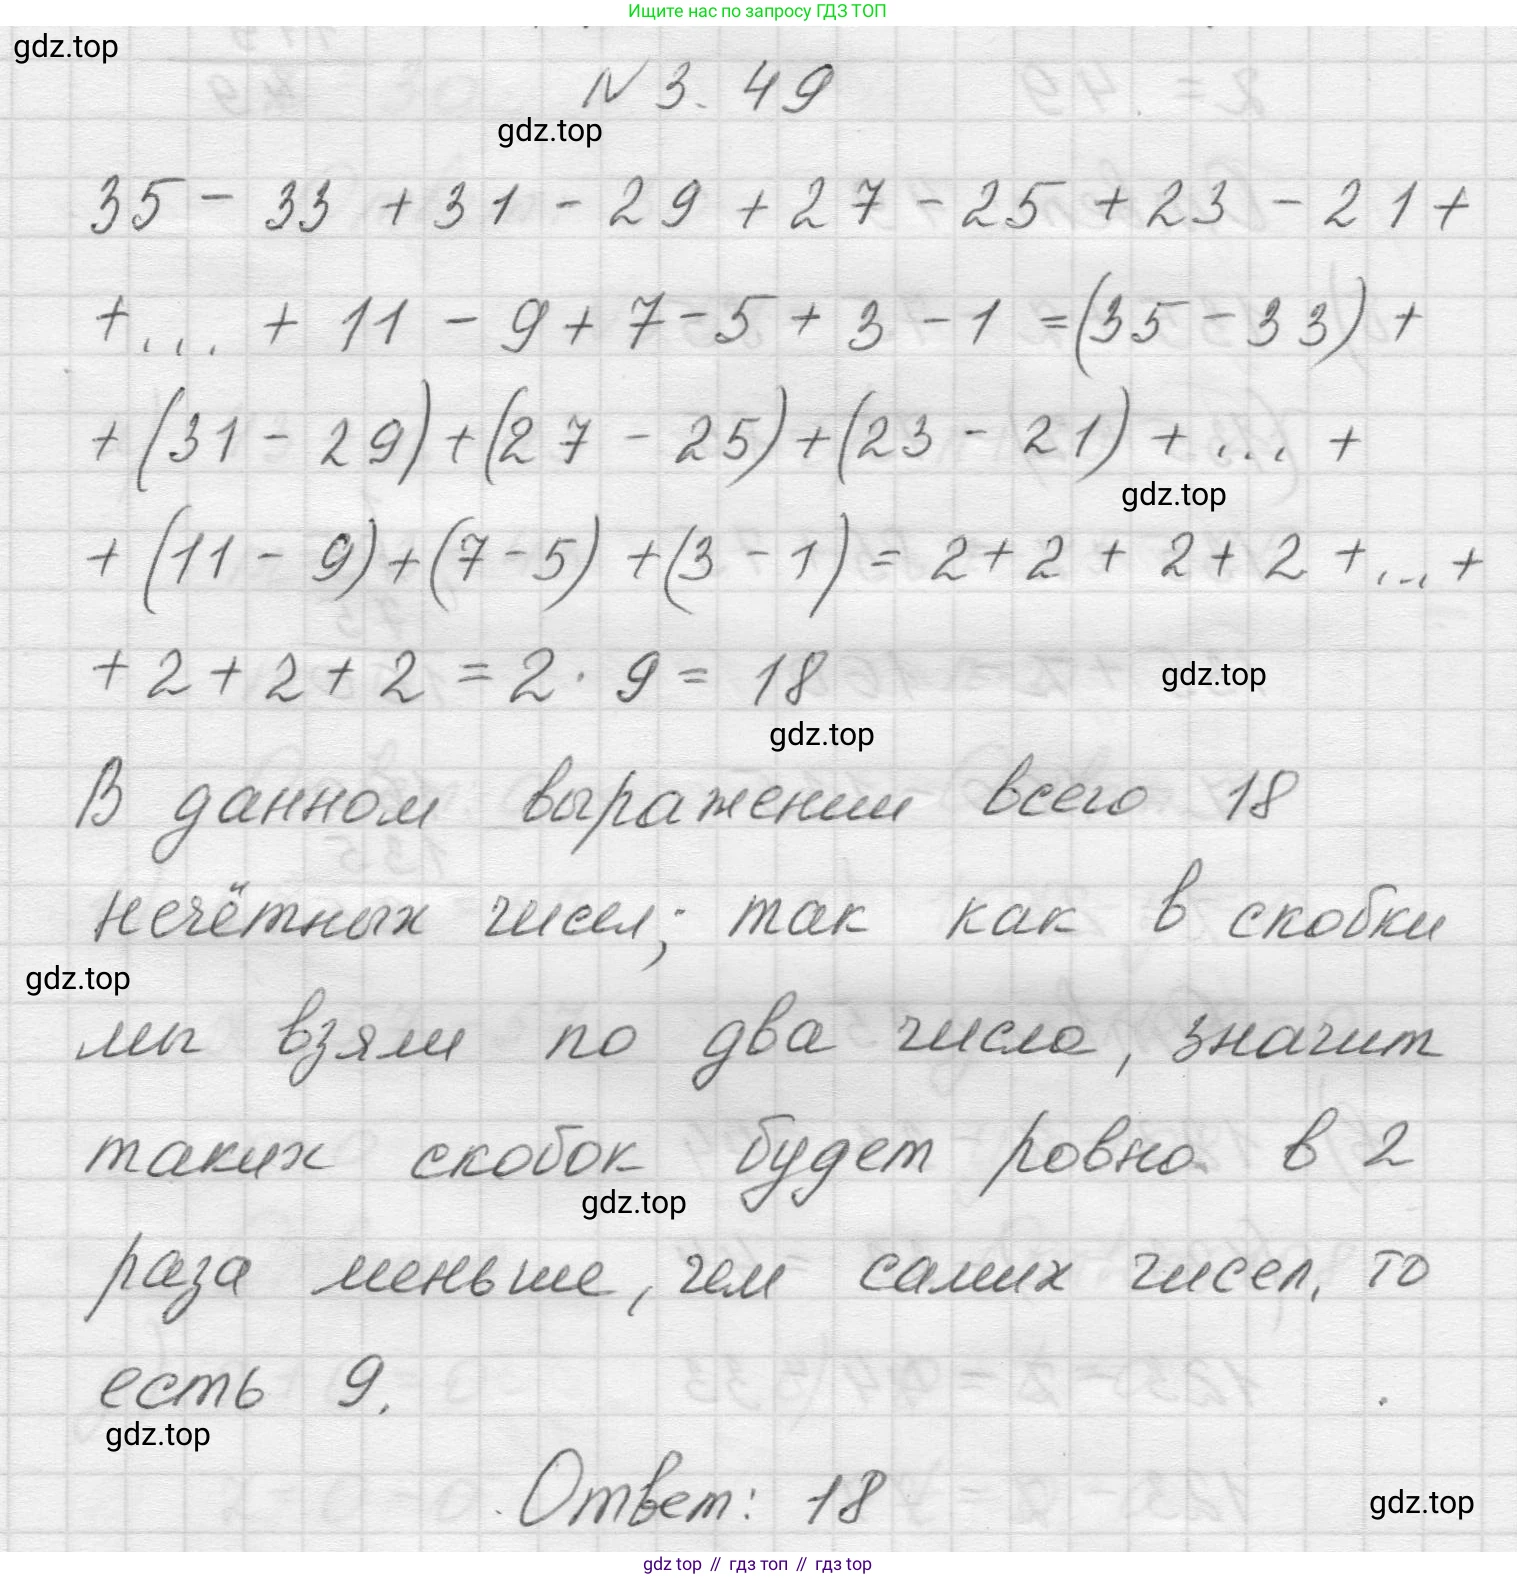 Ищите нас по запросу ГДЗ ТОП
gdz.top
N 3. 49
gdz.top
35 - 33 + 31 - 29 + 27 - 25 + 23 - 21 +
+ ... + 11 - 9 + 7 - 5 + 3 - 1 = (35 - 33) +
+ (31 - 29) + (27 - 25) + (23 - 21) + ... +
gdz.top
+ (11 - 9) + (7 - 5) + (3 - 1) = 2 + 2 + 2 + 2 + ... +
+ 2 + 2 + 2 = 2 · 9 = 18
gdz.top
gdz.top
В данном выражении всего 18
нечётных чисел; так как в скобки
gdz.top
мы взяли по два числа, значит
таких скобок будет ровно в 2
gdz.top
раза меньше, чем самих чисел, то
есть 9.
gdz.top
Ответ: 18
gdz.top
gdz top // гдз топ // гдз top